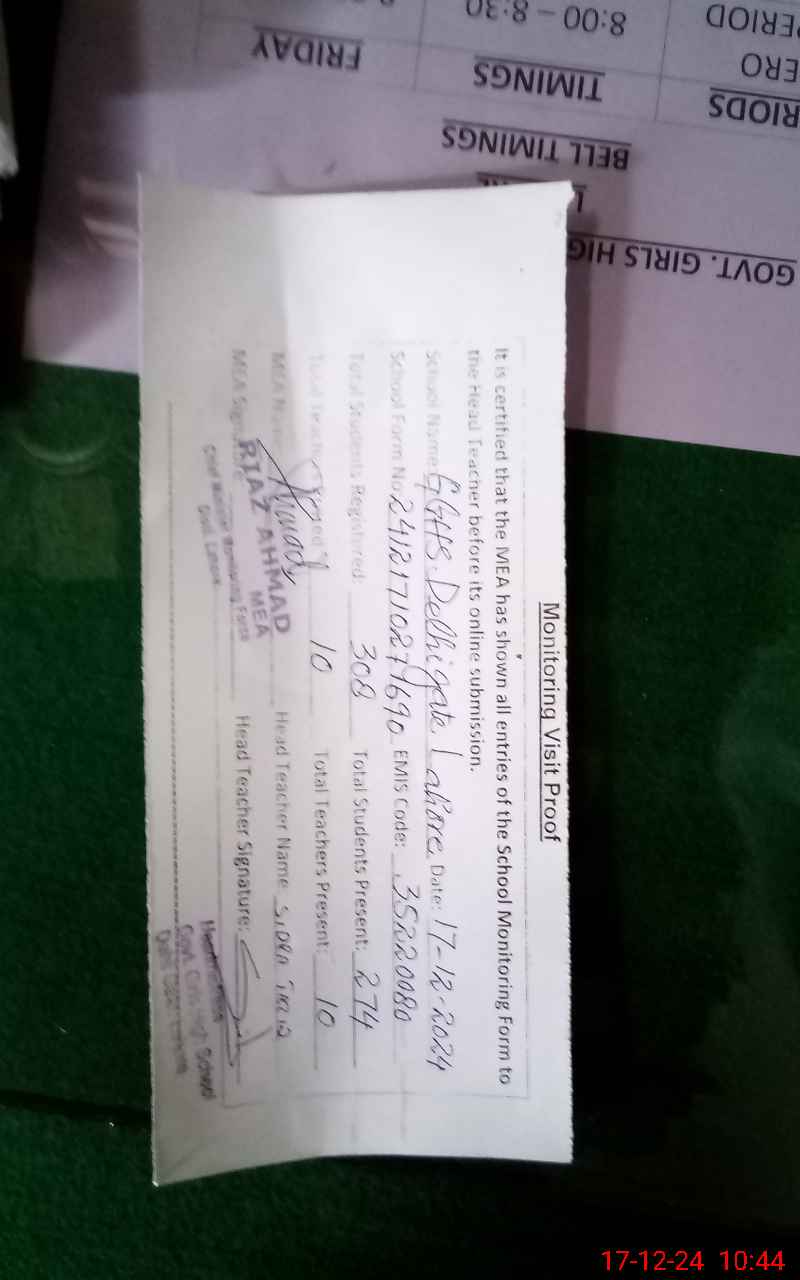 Monitoring Visit Proof
It is certified that the MEA has shown all entries of the School Monitoring Form to
the Head Teacher before its online submission.
School Name: GGHS. Delhi gate, Lahore. Date: 17-12-2024
School Form No. EMIS Code: 35220080
Total Students Registered: 308 Total Students Present: 274
Total Teachers 10 Total Teachers Present: 10
MEA Name Head Teacher Name SIDRA
MEA Signature Head Teacher Signature:
RIAZ AHMAD
MEA
Chief Minister Monitoring Force
Distt. Lahore
Govt. School
GOVT. GIRLS HIG
BELL TIMINGS
RIODS TIMINGS FRIDAY
ERO
PERIOD 8:00 – 8:30
17-12-24 10:44